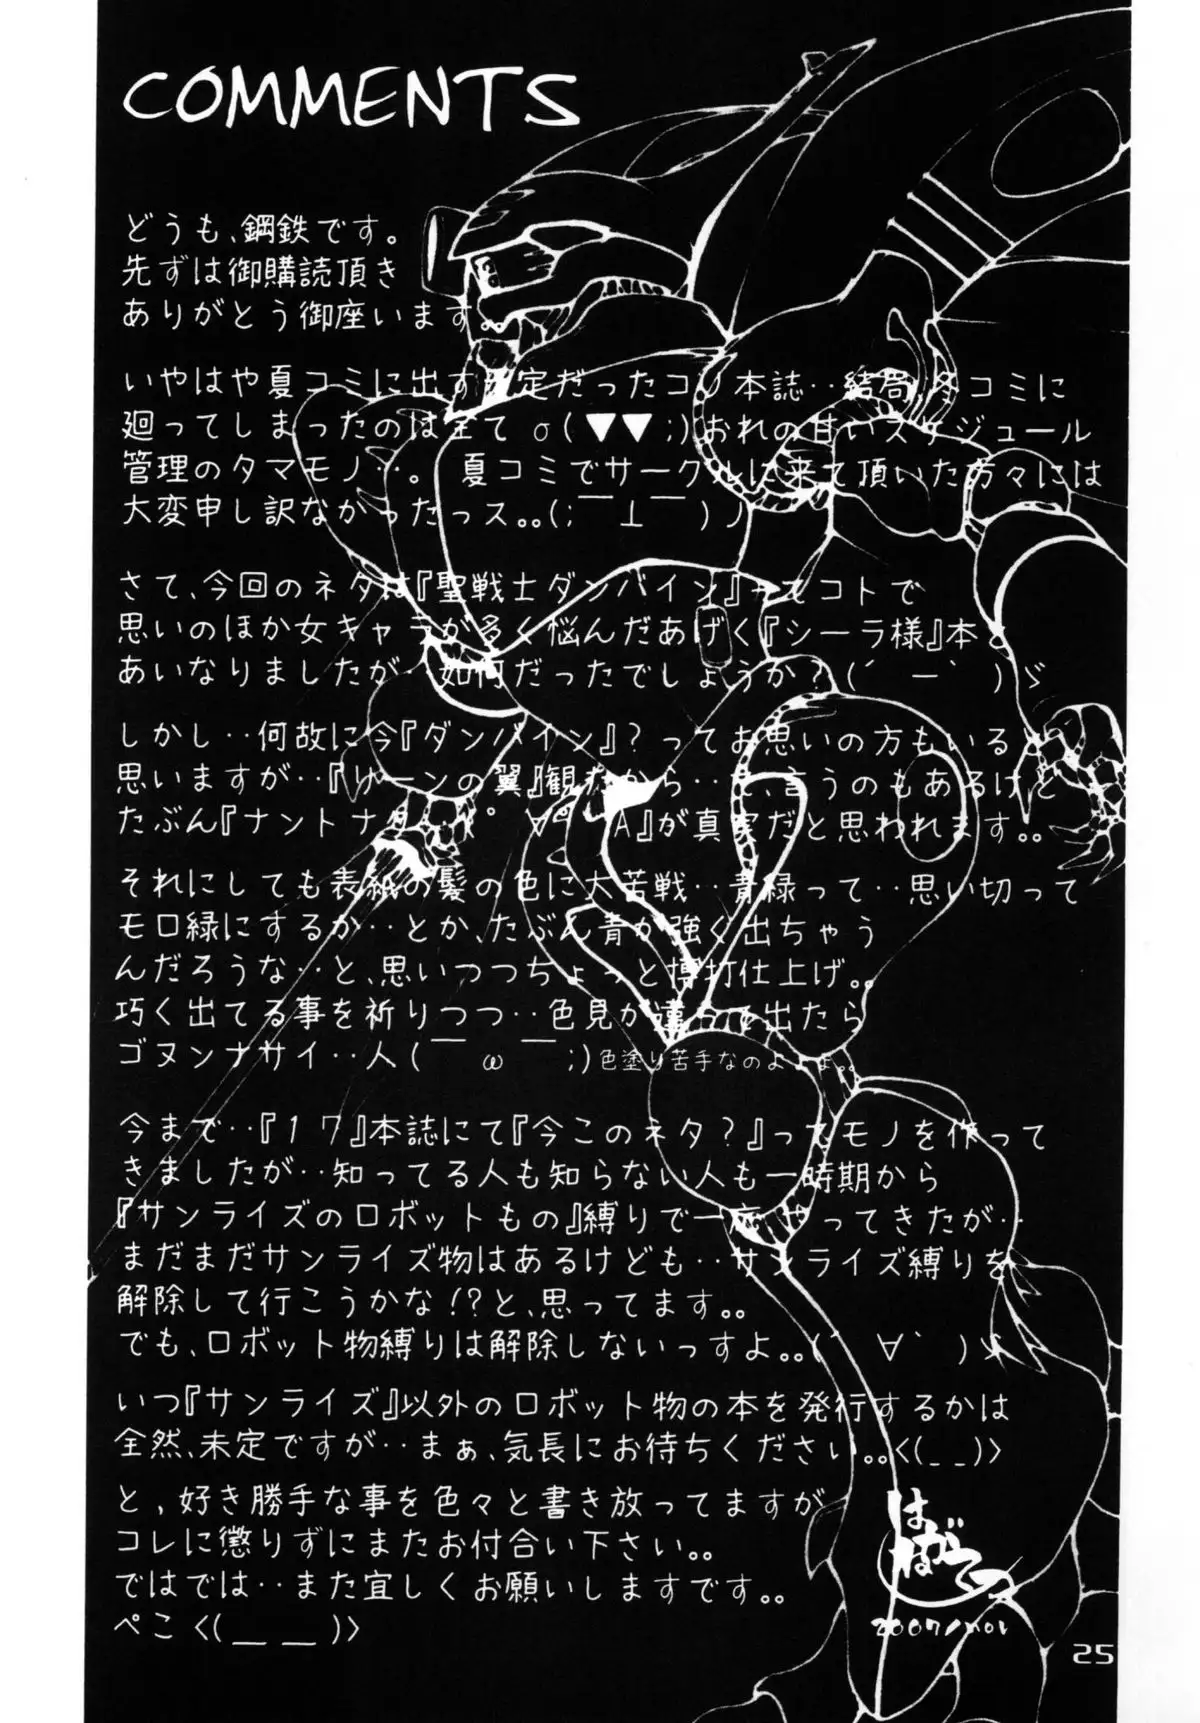 COMMENTS
どうも、鋼鉄です。
先ずは御購読頂き
ありがとう御座います。
いやはや夏コミに出す予定だったコノ本誌‥結局、冬コミに
廻ってしまったのは全てσ(▼▼;)おれの甘いスケジュール
管理のタマモノ‥。 夏コミでサークルに来て頂いた方々には
大変申し訳なかったっス｡｡(;￣⊥￣)ノ
さて、今回のネタは『聖戦士ダンバイン』ってコトで
思いのほか女キャラが多く悩んだあげく『シーラ様』本と
あいなりましたが‥如何だったでしょうか?(´ー`)ゞ
しかし‥何故に今『ダンバイン』?ってお思いの方もいると
思いますが‥『リーンの翼』観たから‥と、言うのもあるけど
たぶん『ナントナク
A』が真実だと思われます｡｡
それにしても表紙の髪の色に大苦戦‥青緑って‥思い切って
モロ緑にするか‥とか、たぶん青が強く出ちゃう
んだろうな‥と、思いつつちょっと博打仕上げ｡｡
巧く出てる事を祈りつつ‥色見が違って出たら
ゴヌンナサイ‥人(￣ω￣;)色塗り苦手なのよょょ｡｡
今まで‥『17』本誌にて『今このネタ?』ってモノを作って
きましたが‥知ってる人も知らない人も一時期から
『サンライズのロボットもの』縛りで一応やってきたが‥
まだまだサンライズ物はあるけども‥サンライズ縛りを
解除して行こうかな!?と、思ってます｡｡
でも、ロボット物縛りは解除しないっすよ｡｡(´∀`)ゞ
いつ『サンライズ』以外のロボット物の本を発行するかは
全然、未定ですが‥まぁ、気長にお待ちください｡｡<(_ _)>
と,好き勝手な事を色々と書き放ってますが
コレに懲りずにまたお付合い下さい｡｡
ではでは‥また宜しくお願いしますです｡｡
ぺこ<(＿ ＿)>
2007/nov
25